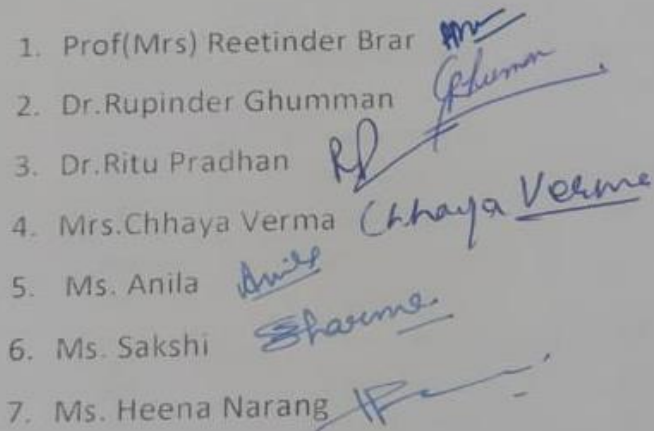 1. Prof(Mrs) Reetinder Brar
2. Dr.Rupinder Ghumman Ghuman
3. Dr.Ritu Pradhan RP
4. Mrs.Chhaya Verma Chhaya Verma
5. Ms. Anila Anila
6. Ms. Sakshi Sharma
7. Ms. Heena Narang